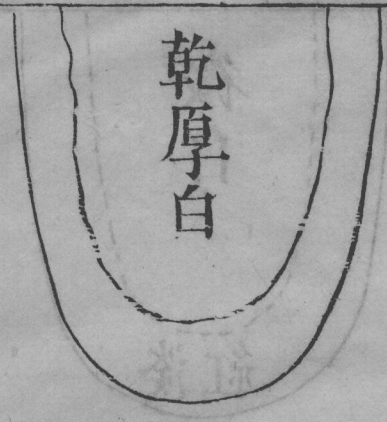 乾厚白